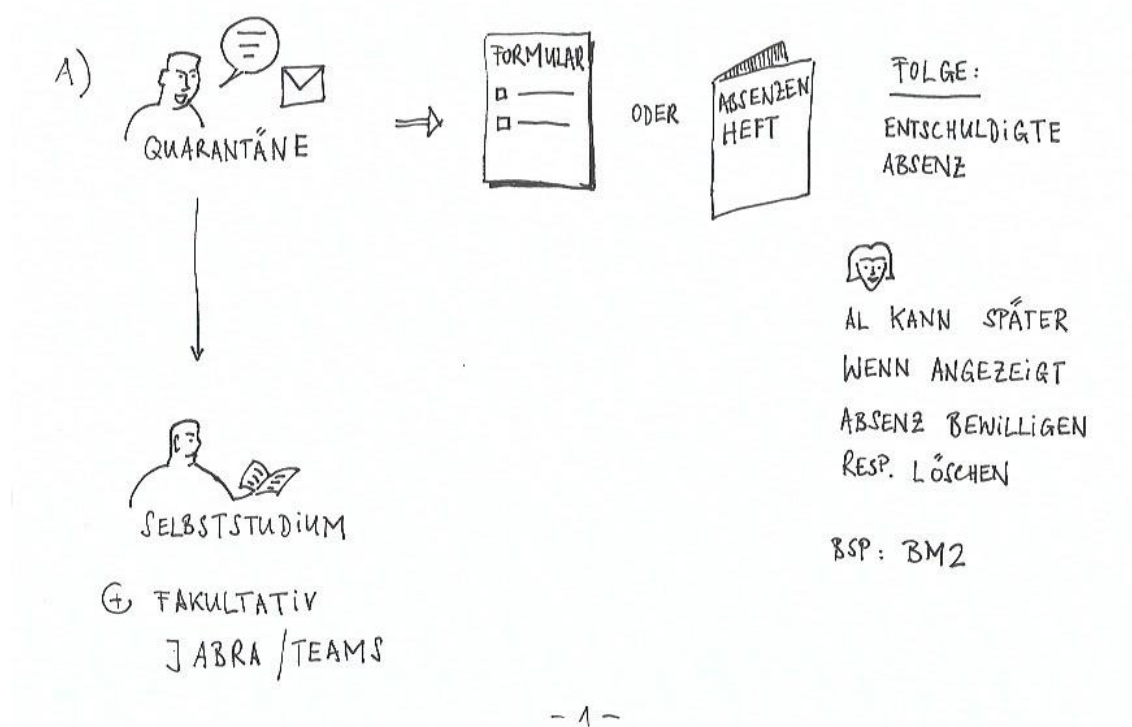 A)
QUARANTÄNE
FORMULAR
ODER
ABSENZEN
HEFT
FOLGE:
ENTSCHULDIGTE
ABSENZ
AL KANN SPÄTER
WENN ANGEZEIGT
ABSENZ BEWILLIGEN
RESP. LÖSCHEN
BSP: BM2
SELBSTSTUDIUM
+ FAKULTATIV
JABRA / TEAMS
- 1 -